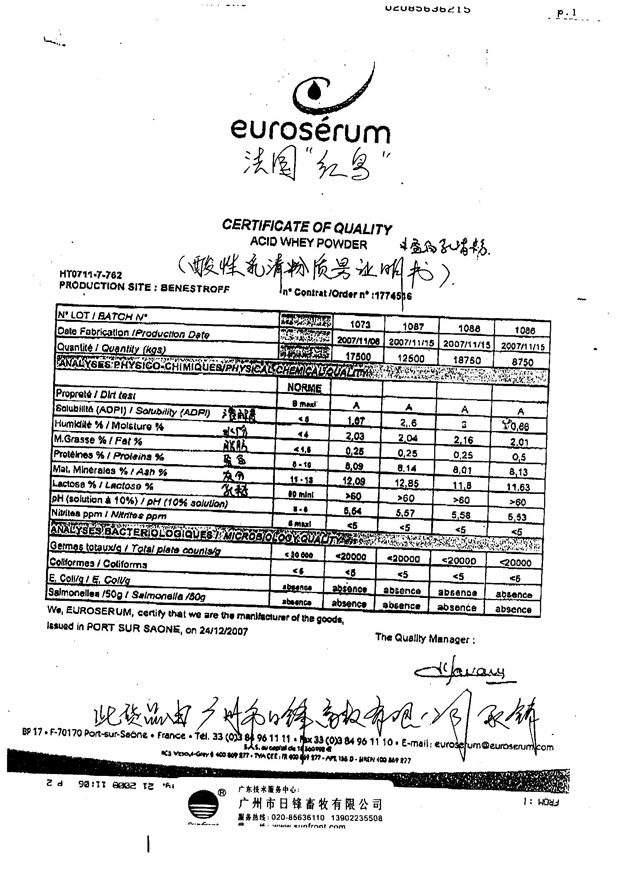 02085636215
p.1
eurosérum
法国"红鸟"
CERTIFICATE OF QUALITY
ACID WHEY POWDER
(酸性乳清粉质量证明书).
HY0711-7-762
PRODUCTION SITE : BENESTROFF
n° Contrat /Order n° :1774516
N° LOT / BATCH N° 1073 1087 1088 1086
Date Fabrication /Production Date 2007/11/06 2007/11/15 2007/11/15 2007/11/15
Quantité / Quantity (kgs) 17500 12500 18750 8750
ANALYSES PHYSICO-CHIMIQUES/PHYSICAL CHEMICAL QUALITY
NORME
Propreté / Dirt test B maxi A A A A
Solubilité (ADPI) / Solubility (ADPI) 溶解度 1,67 2,.6 3 0,66
Humidité % / Moisture % 水份 2,03 2,04 2,16 2,01
M.Grasse % / Fat % 脂肪 0,25 0,25 0,25 0,5
Protéines % / Proteins % 蛋白 8 - 10 8,09 8,14 8,01 8,13
Mat. Minérales % / Ash % 灰份 11 - 13 12,09 12,85 11,8 11,63
Lactose % / Lactose % 乳糖 60 mini >60 >60 >60 >60
pH (solution à 10%) / pH (10% solution) 5,54 5,57 5,58 5,53
Nitrites ppm / Nitrites ppm 5 maxi <5 <5 <5 <5
ANALYSES BACTERIOLOGIQUES / MICROBIOLOGY QUALITY
Germes totaux/g / Total plate counts/g <20 000 <20000 <20000 <20000 <20000
Coliformes / Coliforms <5 <5 <5 <5
E. Coli/g / E. Coli/g absence absence absence absence absence
Salmonelles /50g / Salmonella /50g absence absence absence absence absence
We, EUROSERUM, certify that we are the manifacturer of the goods,
Issued in PORT SUR SAONE, on 24/12/2007
The Quality Manager :
此货品由广州市日锋畜牧有限公司
BP 17 • F-70170 Port-sur-Saône • France • Tél. 33 (0)3 84 96 11 11 • Fax 33 (0)3 84 96 11 10 • E-mail : euroserum@euroserum.com
21 2008 11:06 P 2
FROM :
广东技术服务中心:
广州市日锋畜牧有限公司
服务热线: 020-85636110 13902235508
www.sunfront.com
Sunfront